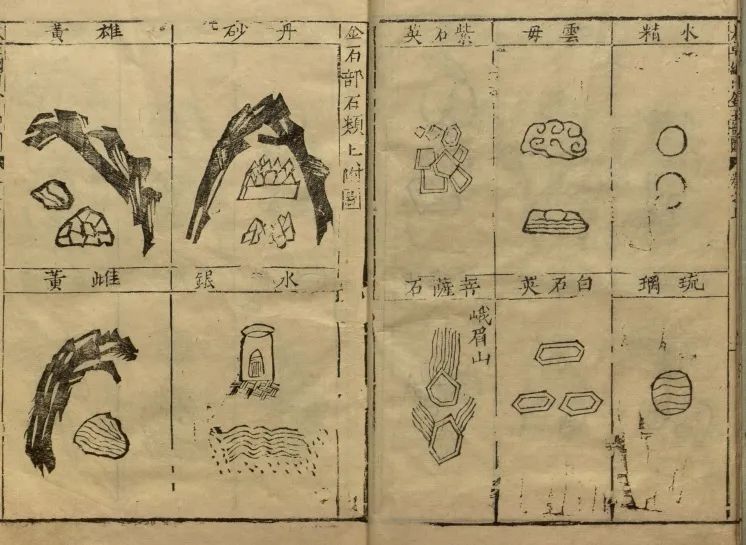 水精
雲母
紫石英
琉璃
白石英
菩薩石
峨眉山
金石部石類上附圖
丹砂
雄黃
水銀
雌黃